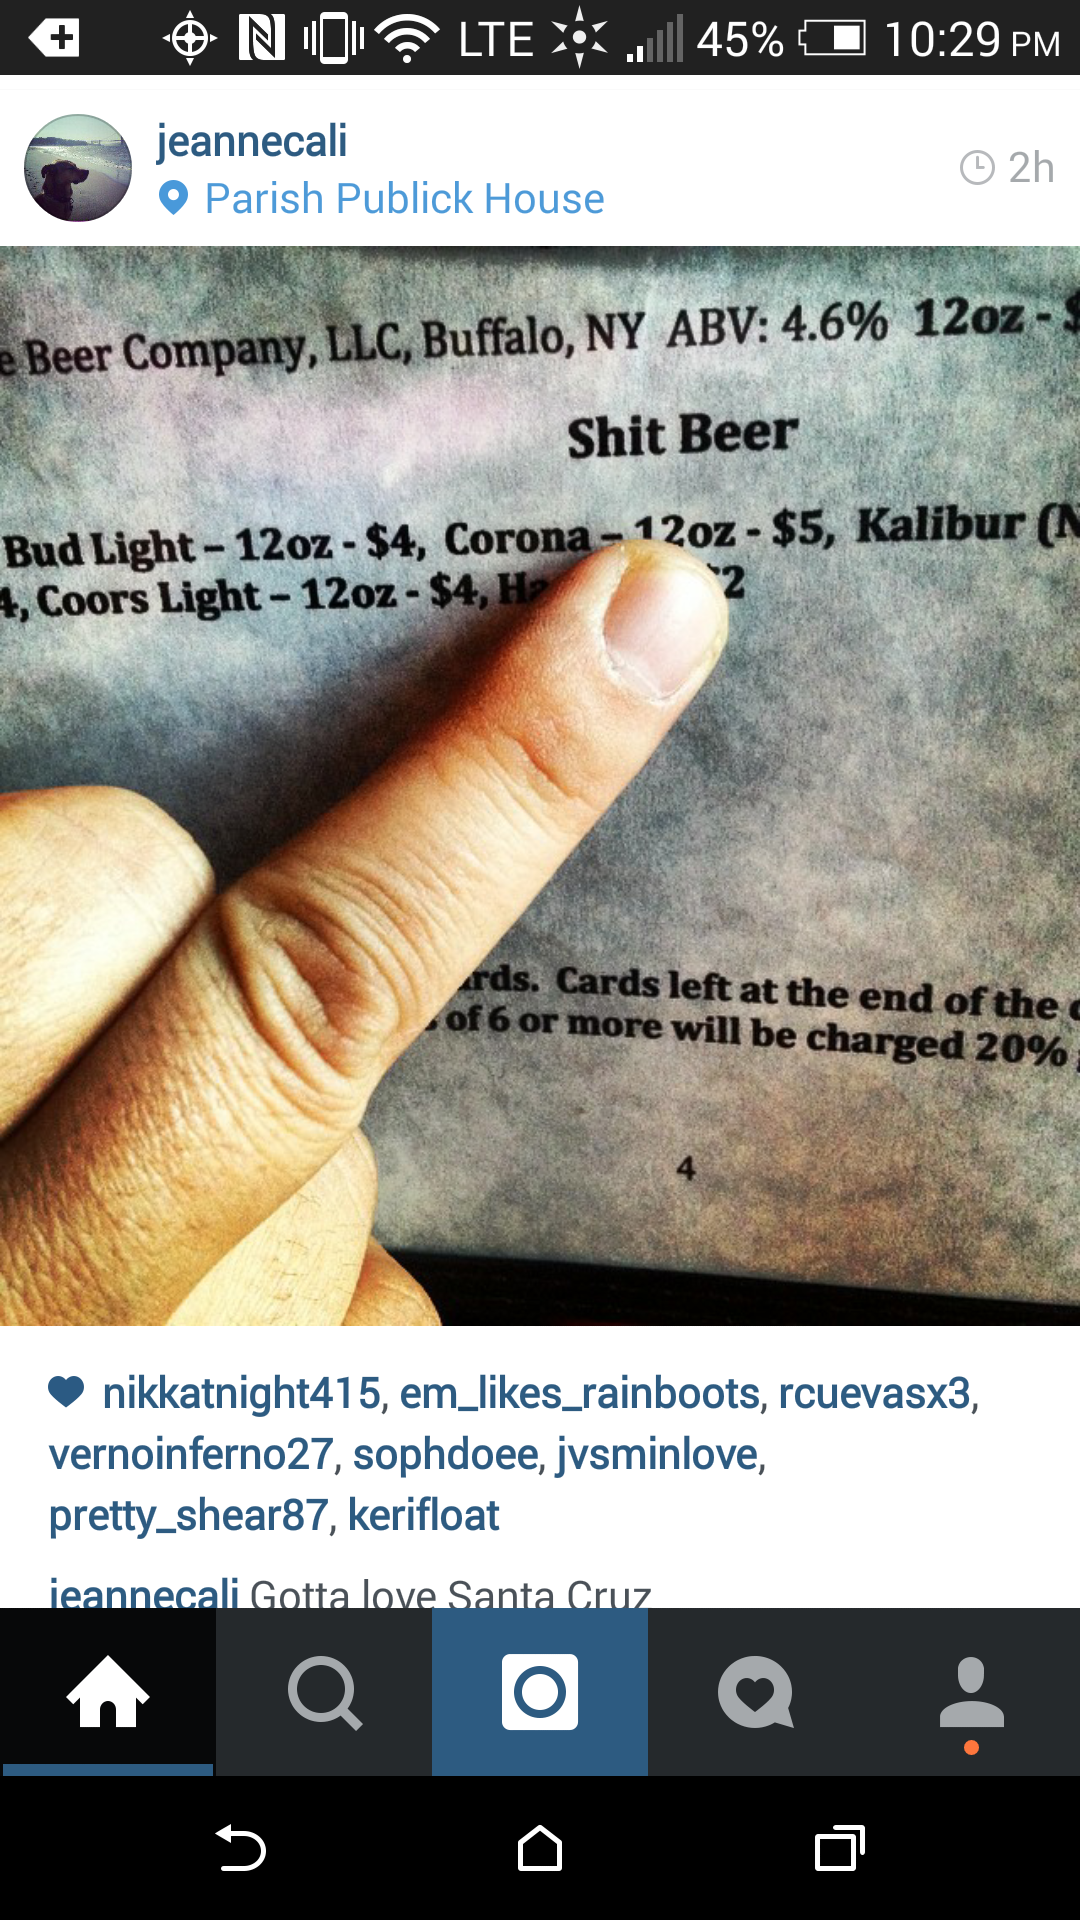 LTE 45% 10:29 PM
jeannecali
2h
Parish Publick House
e Beer Company, LLC, Buffalo, NY ABV: 4.6% 12oz - $
Shit Beer
Bud Light – 12oz - $4, Corona – 12oz - $5, Kalibur (N
4, Coors Light – 12oz - $4, Ha 2
rds. Cards left at the end of the
of 6 or more will be charged 20%
4
nikkatnight415, em_likes_rainboots, rcuevasx3,
vernoinferno27, sophdoee, jvsminlove,
pretty_shear87, kerifloat
jeannecali Gotta love Santa Cruz